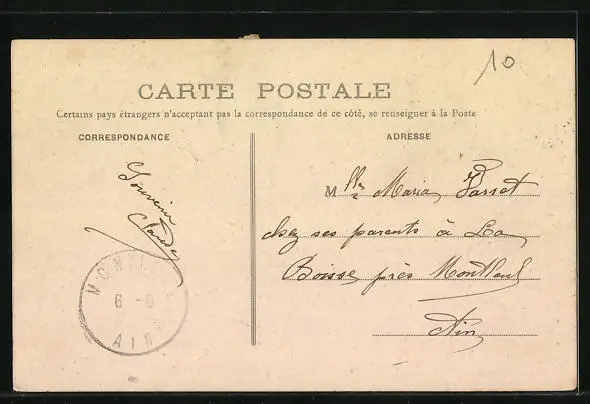 10
CARTE POSTALE
Certains pays étrangers n'acceptant pas la correspondance de ce côté, se renseigner à la Poste
CORRESPONDANCE
ADRESSE
Souvenir
Claude
Mlle Maria Jasset
chez ses parents à La
Boisse près Montluel
Ain
MONTLUEL
6 -9
AIN